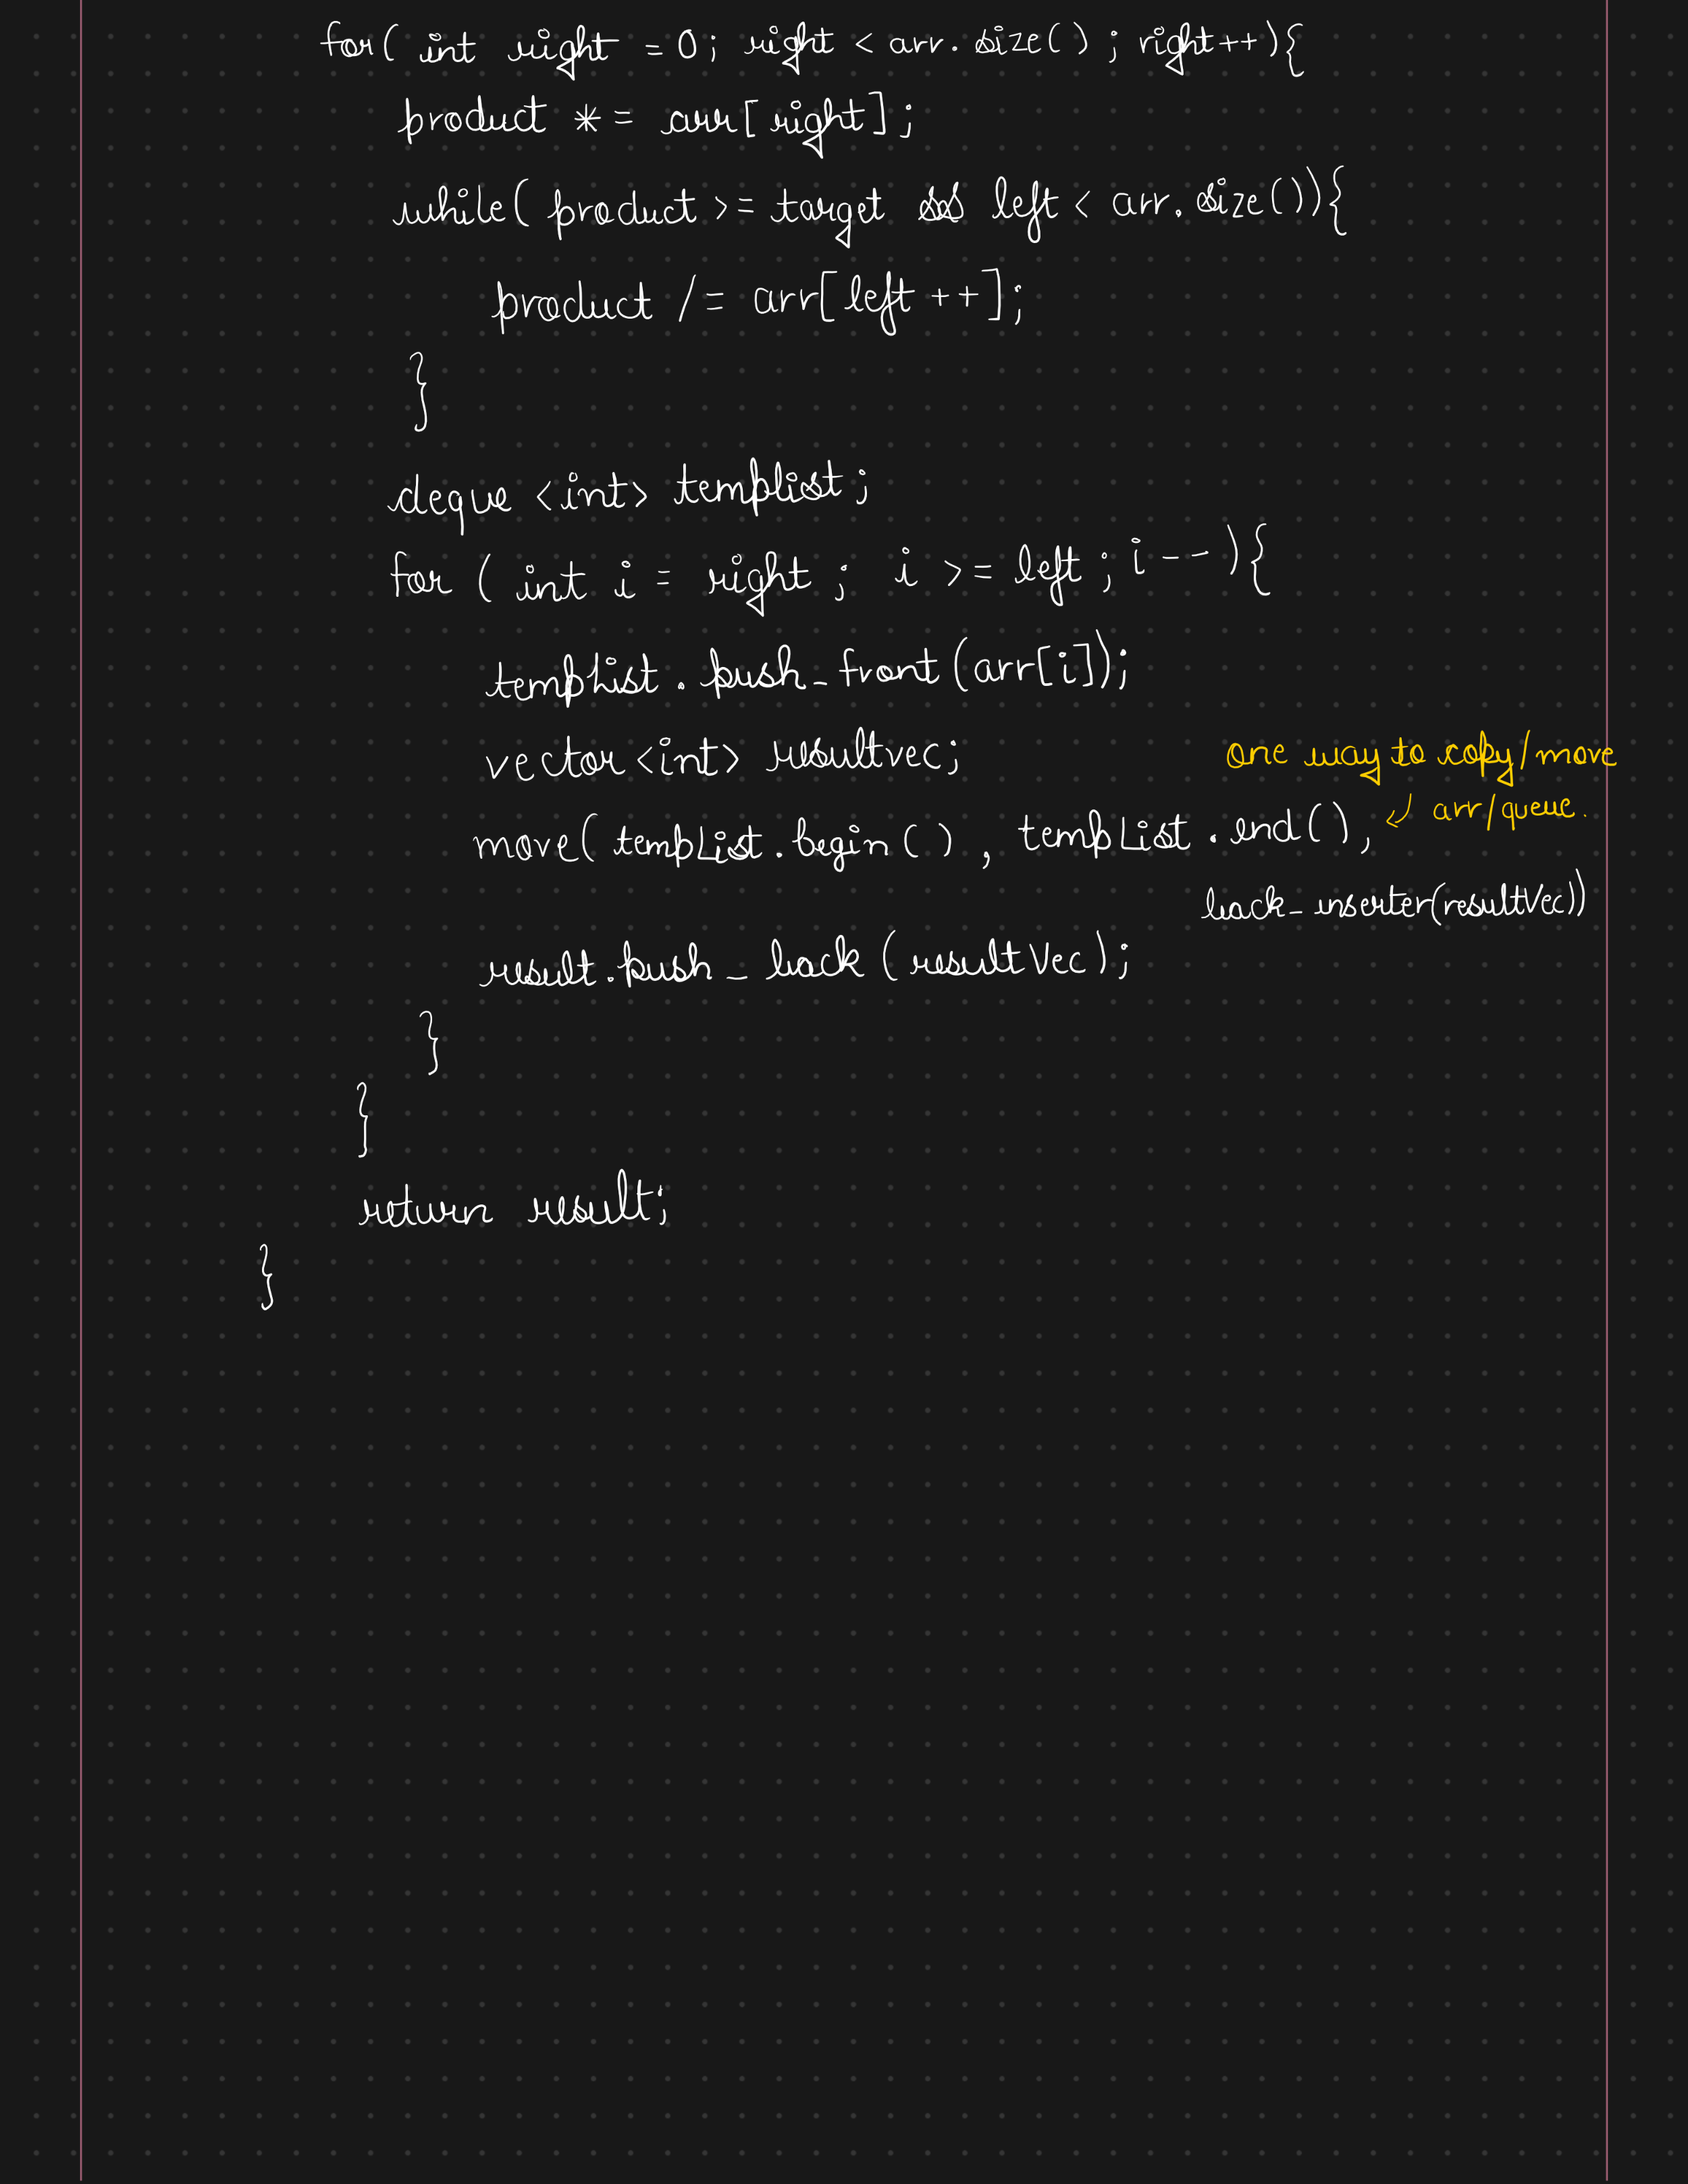 for( int right = 0; right < arr. size() ; right++){
product *= arr[right];
while( product >= target && left < arr. size()){
product /= arr[left ++];
}
deque <int> templist;
for ( int i = right ; i >= left ; i--){
tempList . push_front (arr[i]);
vector <int> resultvec;
one way to copy/move
move( tempList . begin () , tempList . end(), ↙ arr/queue.
back_inserter(resultVec))
result. push_back (resultVec);
}
}
return result;
}